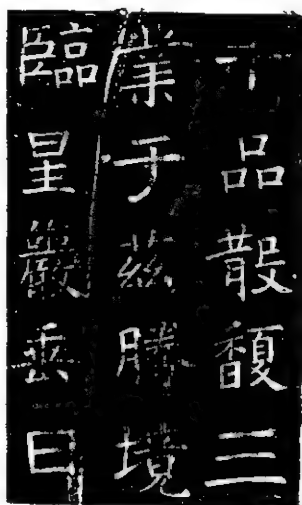 品散馥三
業于茲勝境
臨星嚴垂日